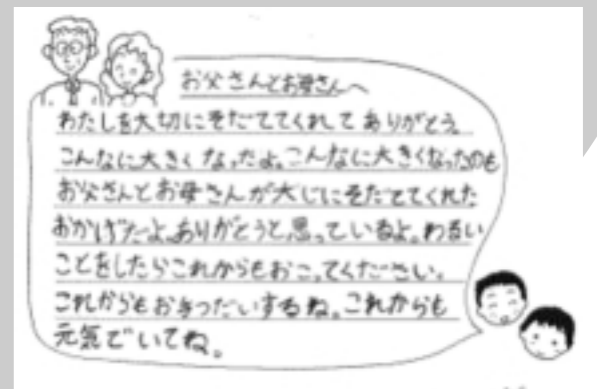 お父さんとお母さんへ
わたしを大切にそだててくれてありがとう。
こんなに大きくなったよ。こんなに大きくなったのも
お父さんとお母さんが大じにそだててくれた
おかげだよ。ありがとうと思っているよ。わるい
ことをしたらこれからもおこってください。
これからもお手つだいするね。これからも
元気でいてね。